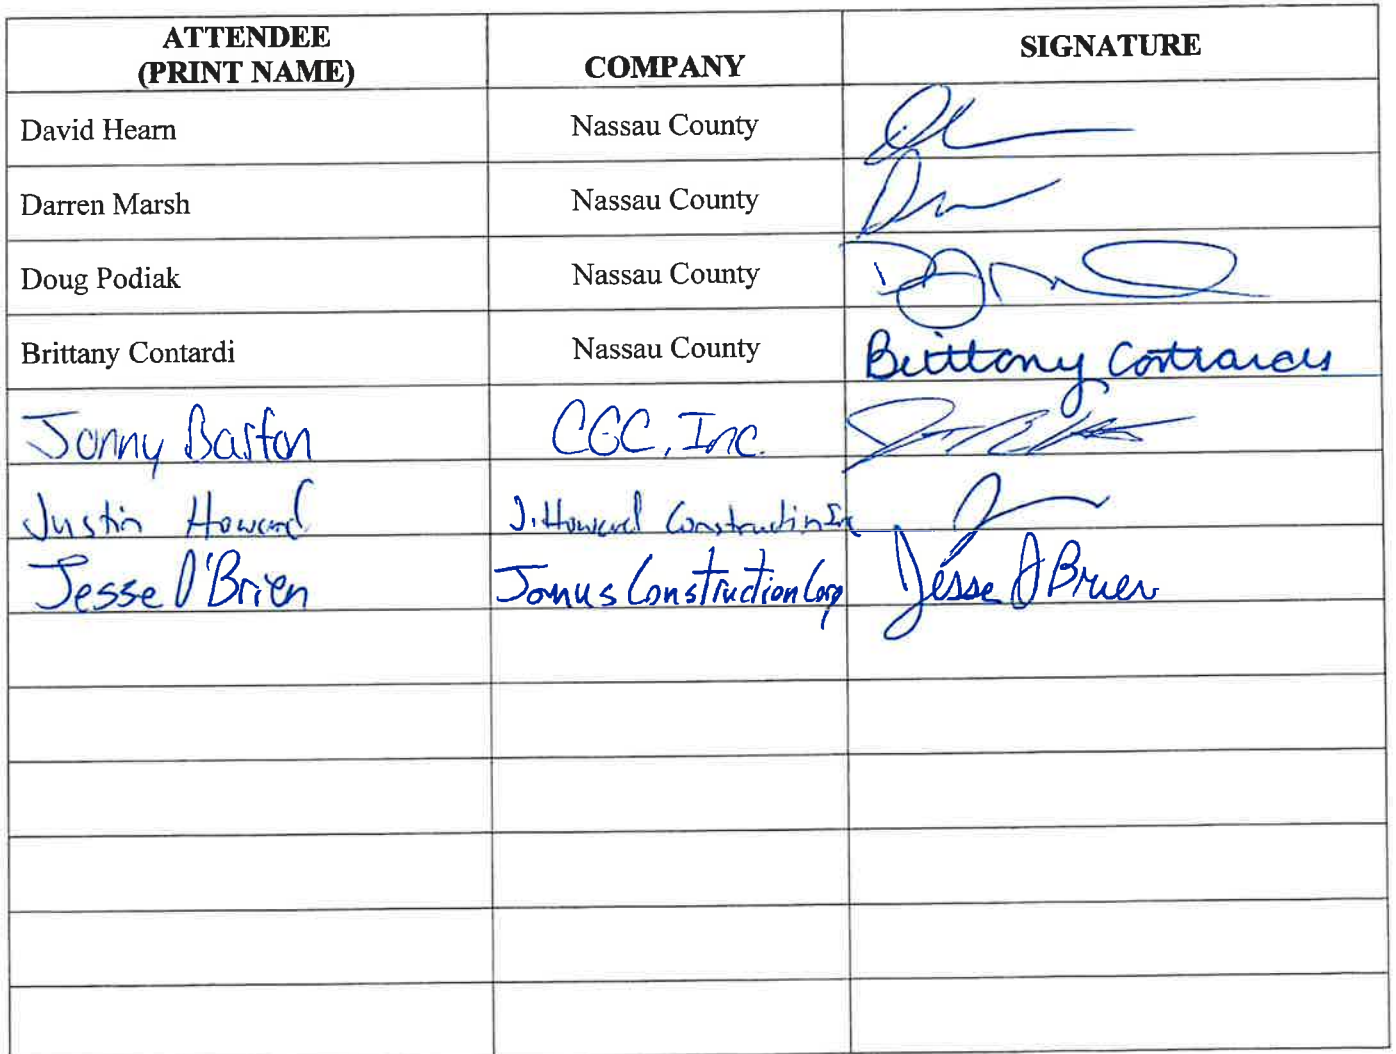 ATTENDEE
(PRINT NAME)
COMPANY
SIGNATURE
David Hearn
Nassau County
Darren Marsh
Nassau County
Doug Podiak
Nassau County
Brittany Contardi
Nassau County
Brittany
Jonny Barton
CGC, Inc.
Justin Howard
J. Howard Construction Inc
Jesse O'Brien
Jonus Construction Corp
Jesse O'Brien